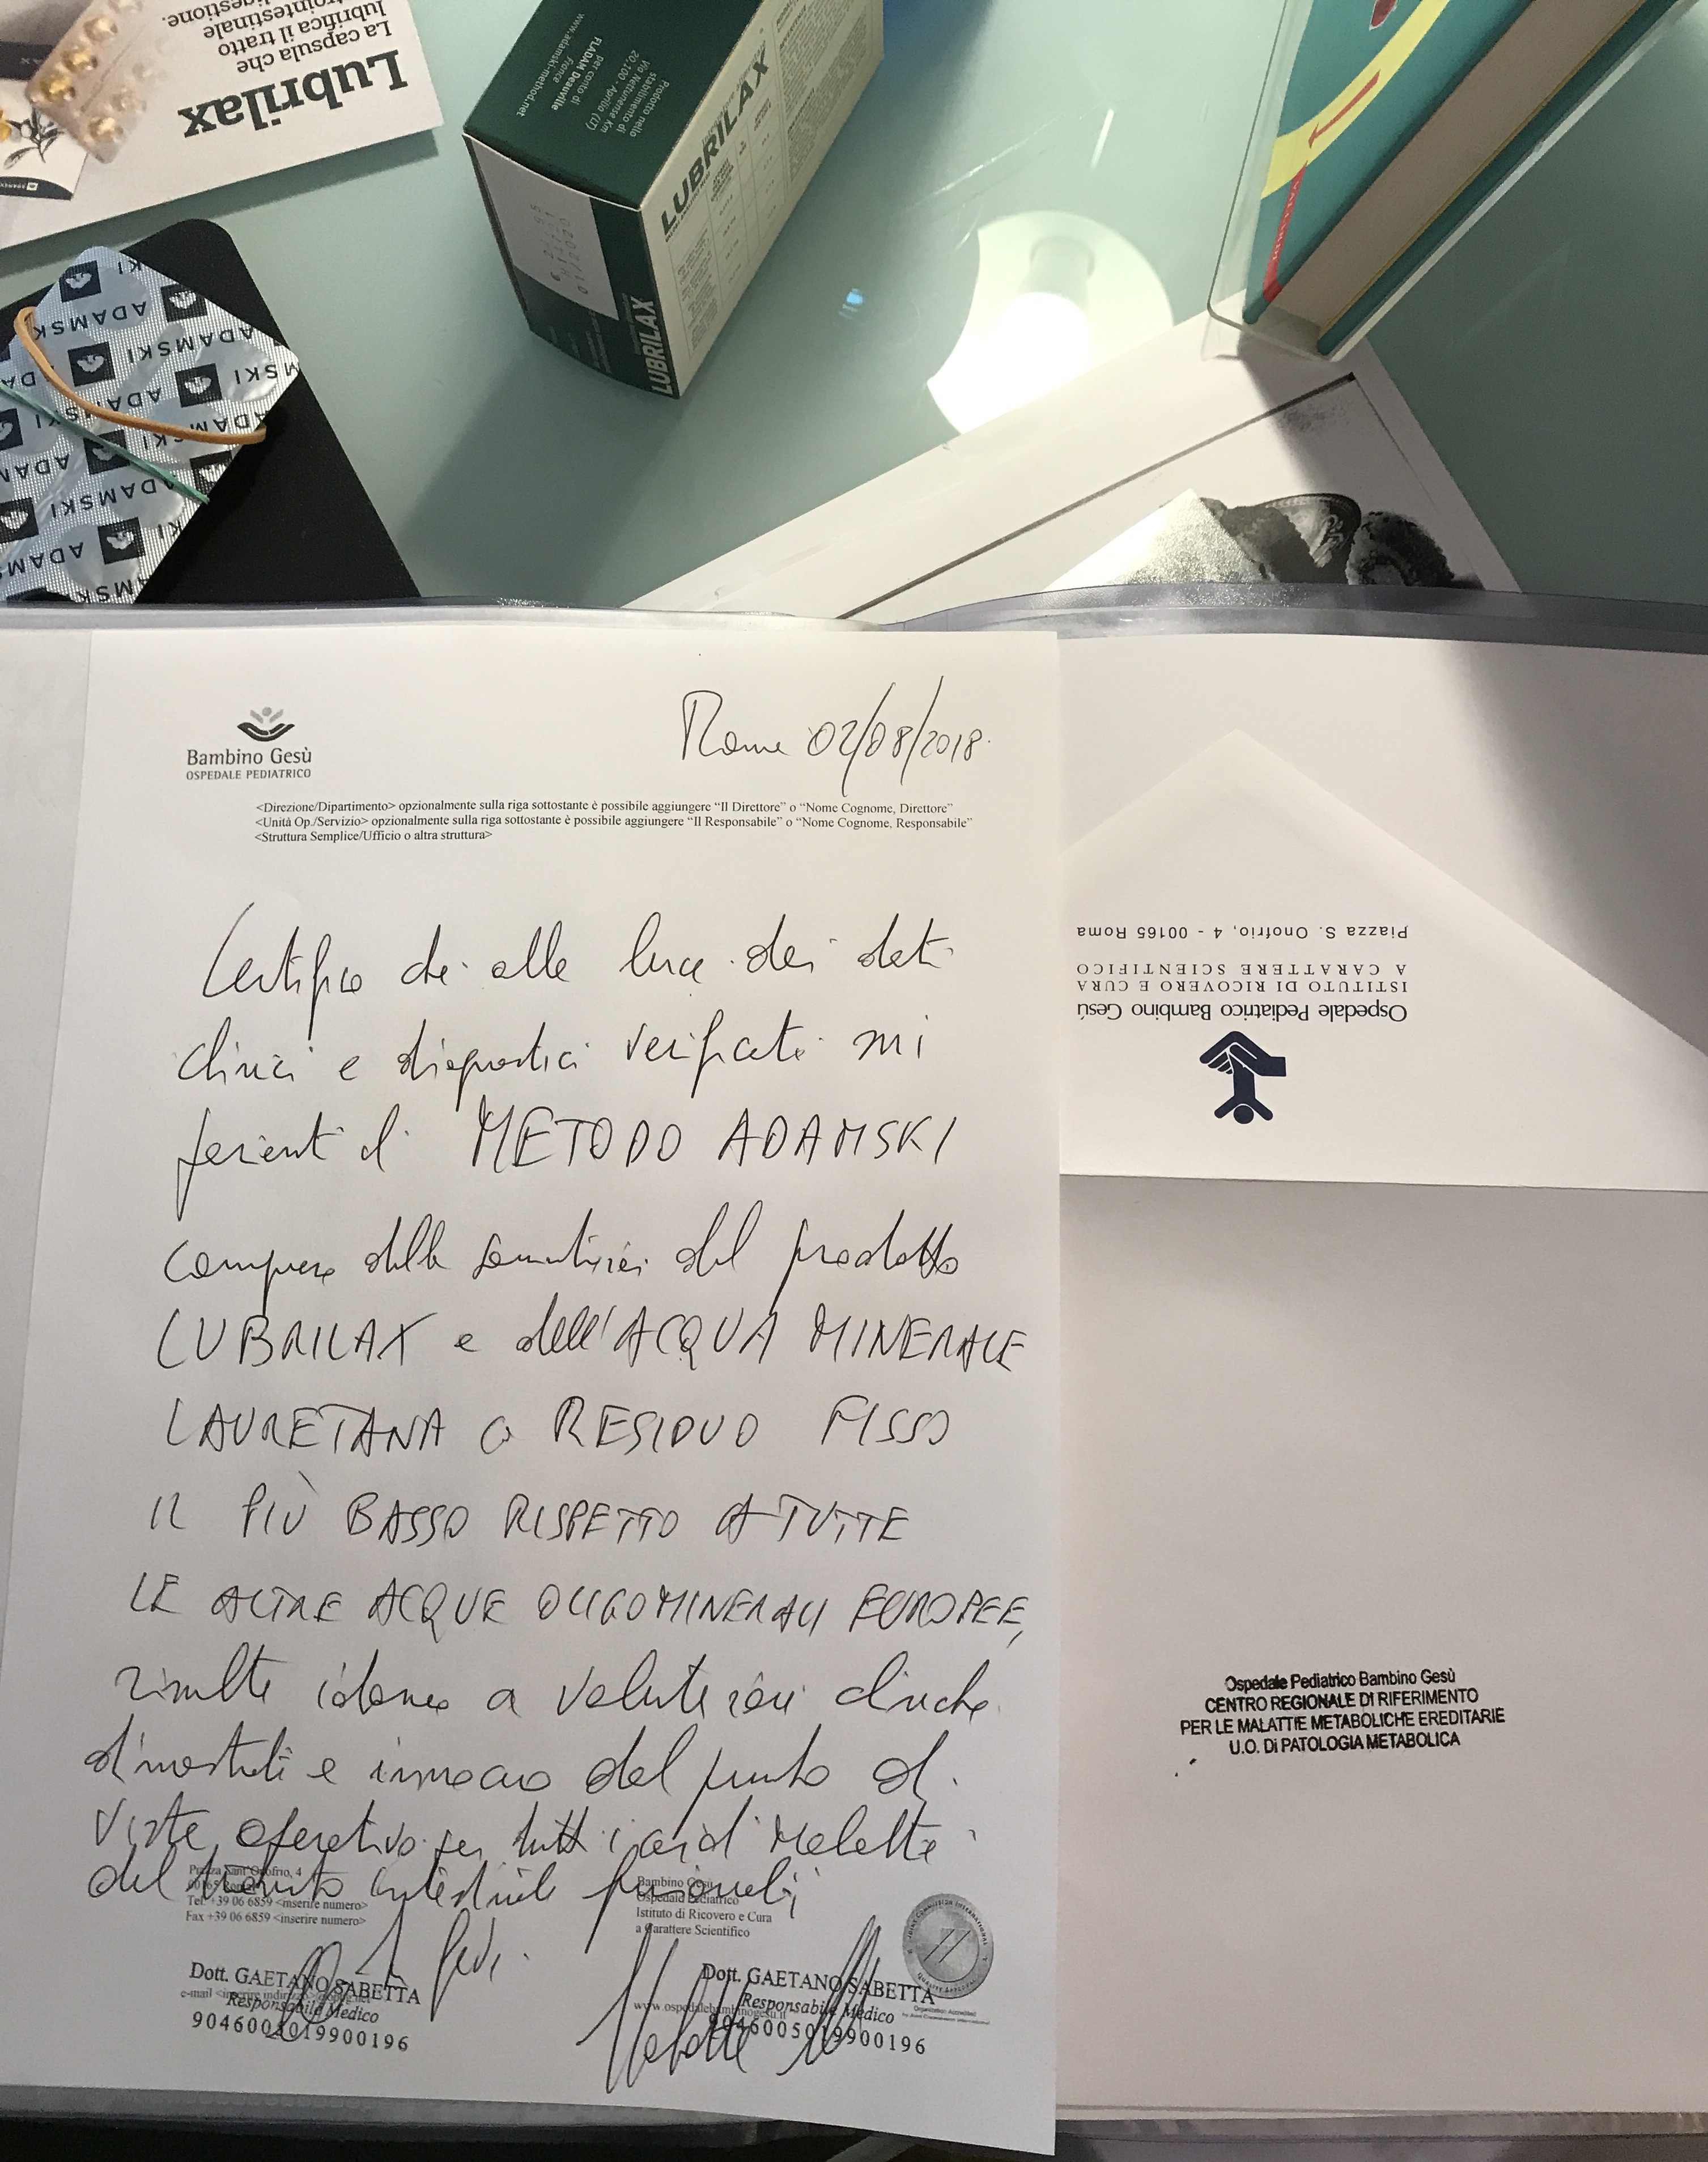 Lubrilax
La capsula che
lubrifica il tratto
LUBRILAX
Prodotto nello
stabilimento di
Via Nettunense Km
20,100 - Aprilia (LT)
per conto di
FLADAM Deauville
France
www.adamski-method.net
LUBRILAX
01/2020
ADAMSKI
ADAMSKI
ADAMSKI
ADAMSKI
ADAMSKI
Bambino Gesù
OSPEDALE PEDIATRICO
Roma 02/08/2018.
<Direzione/Dipartimento> opzionalmente sulla riga sottostante è possibile aggiungere “Il Direttore” o “Nome Cognome, Direttore”
<Unità Op./Servizio> opzionalmente sulla riga sottostante è possibile aggiungere “Il Responsabile” o “Nome Cognome, Responsabile”
<Struttura Semplice/Ufficio o altra struttura>
Certifico che alla luce dei dati
clinici e diagnostici verificati sui
pazienti il METODO ADAMSKI
della del prodotto
LUBRILAX e dell'ACQUA MINERALE
LAURETANA A RESIDUO FISSO
IL PIÙ BASSO RISPETTO A TUTTE
LE ALTRE ACQUE OLIGOMINERALI EUROPEE,
risulta idoneo a valutazioni cliniche
dimostrati e innocuo dal punto di
vista operativo per tutti i casi di Malattie
del intestinale funzionali
Piazza Sant'Onofrio, 4
00165 Roma
Tel. +39 06 6859 <inserire numero>
Fax +39 06 6859 <inserire numero>
Bambino Gesù
Ospedale Pediatrico
Istituto di Ricovero e Cura
a Carattere Scientifico
In fede.
Dott. GAETANO SABETTA
Responsabile Medico
9046005019900196
Dott. GAETANO SABETTA
Responsabile Medico
9046005019900196
www.ospedalebambinogesu.it
JOINT COMMISSION INTERNATIONAL
QUALITY APPROVAL
Ospedale Pediatrico Bambino Gesù
ISTITUTO DI RICOVERO E CURA
A CARATTERE SCIENTIFICO
Piazza S. Onofrio, 4 - 00165 Roma
Ospedale Pediatrico Bambino Gesù
CENTRO REGIONALE DI RIFERIMENTO
PER LE MALATTIE METABOLICHE EREDITARIE
U.O. Di PATOLOGIA METABOLICA